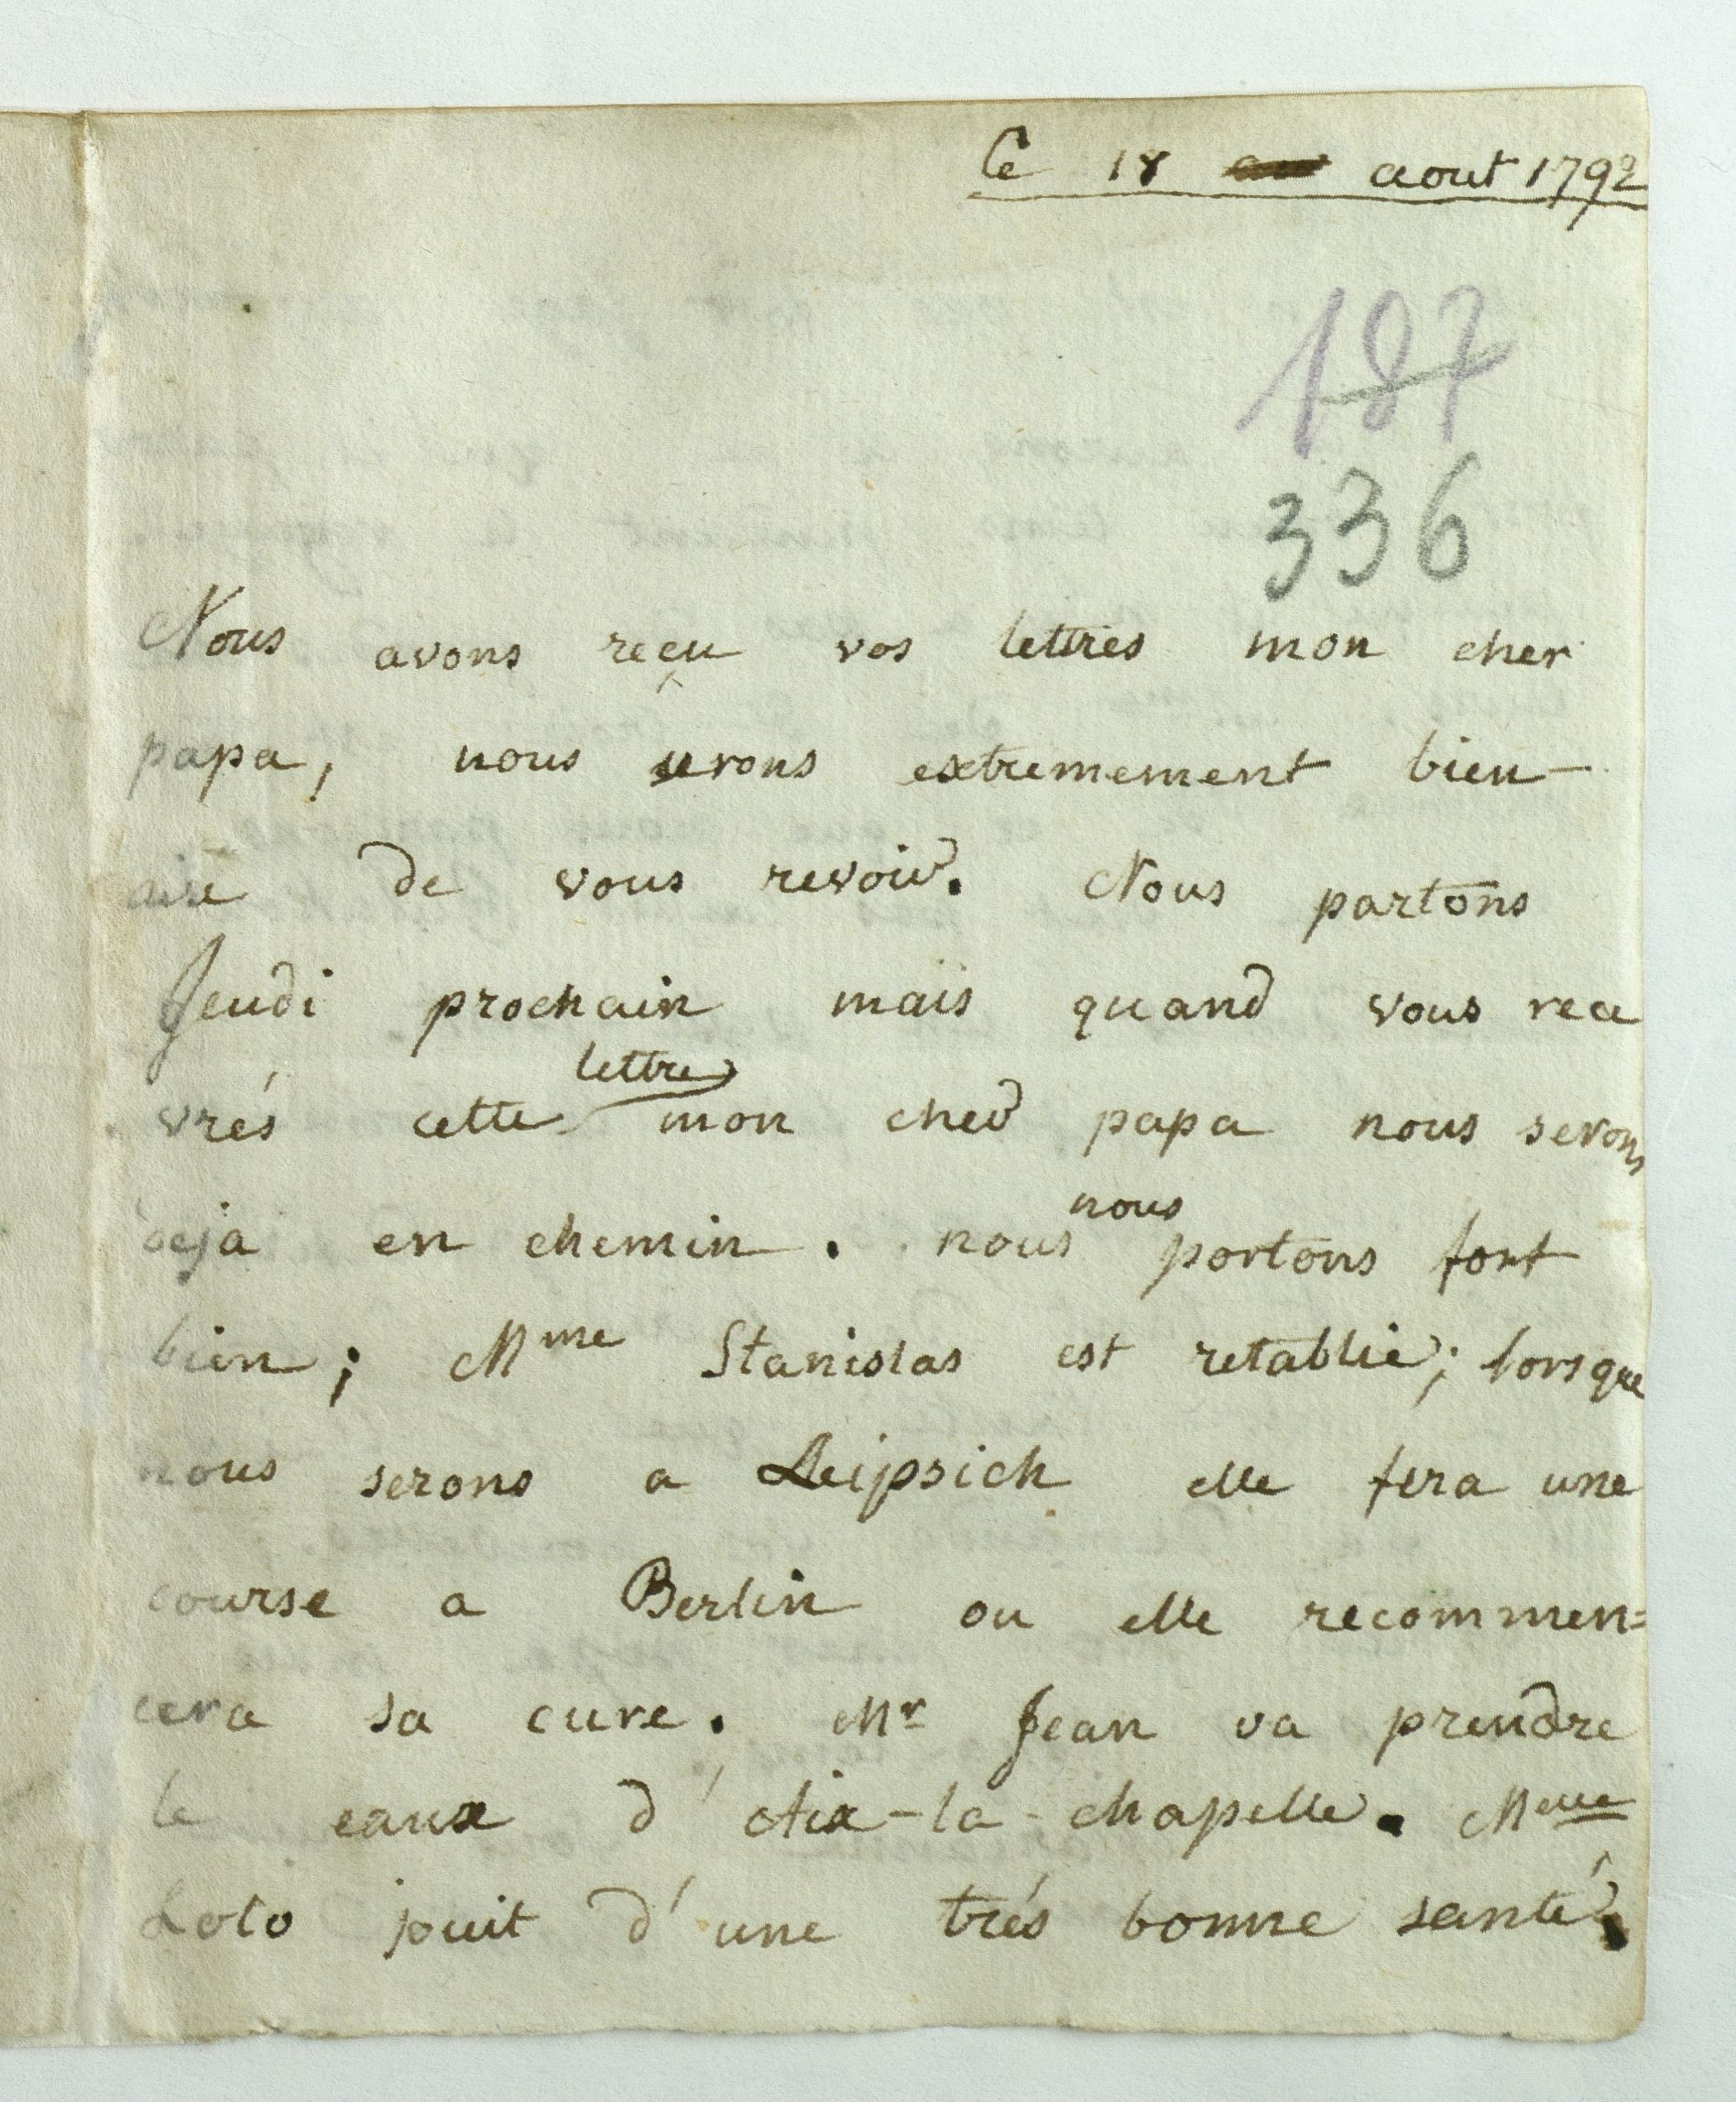 Ce 18 aout 1792
187
336
Nous avons reçu vos lettres mon cher
papa, nous serons extremement bien-
aise de vous revoir. Nous partons
Jeudi prochain mais quand vous rece
vrés cette lettre mon cher papa nous serons
deja en chemin. nous nous portons fort
bien; Mme Stanislas est retablie; lorsque
nous serons a Leipsich elle fera une
course a Berlin ou elle recommen=
cera sa cure. Mr Jean va prendre
le eaux d'Aix-la-chapelle. Melle
Loto jouit d'une trés bonne santé.